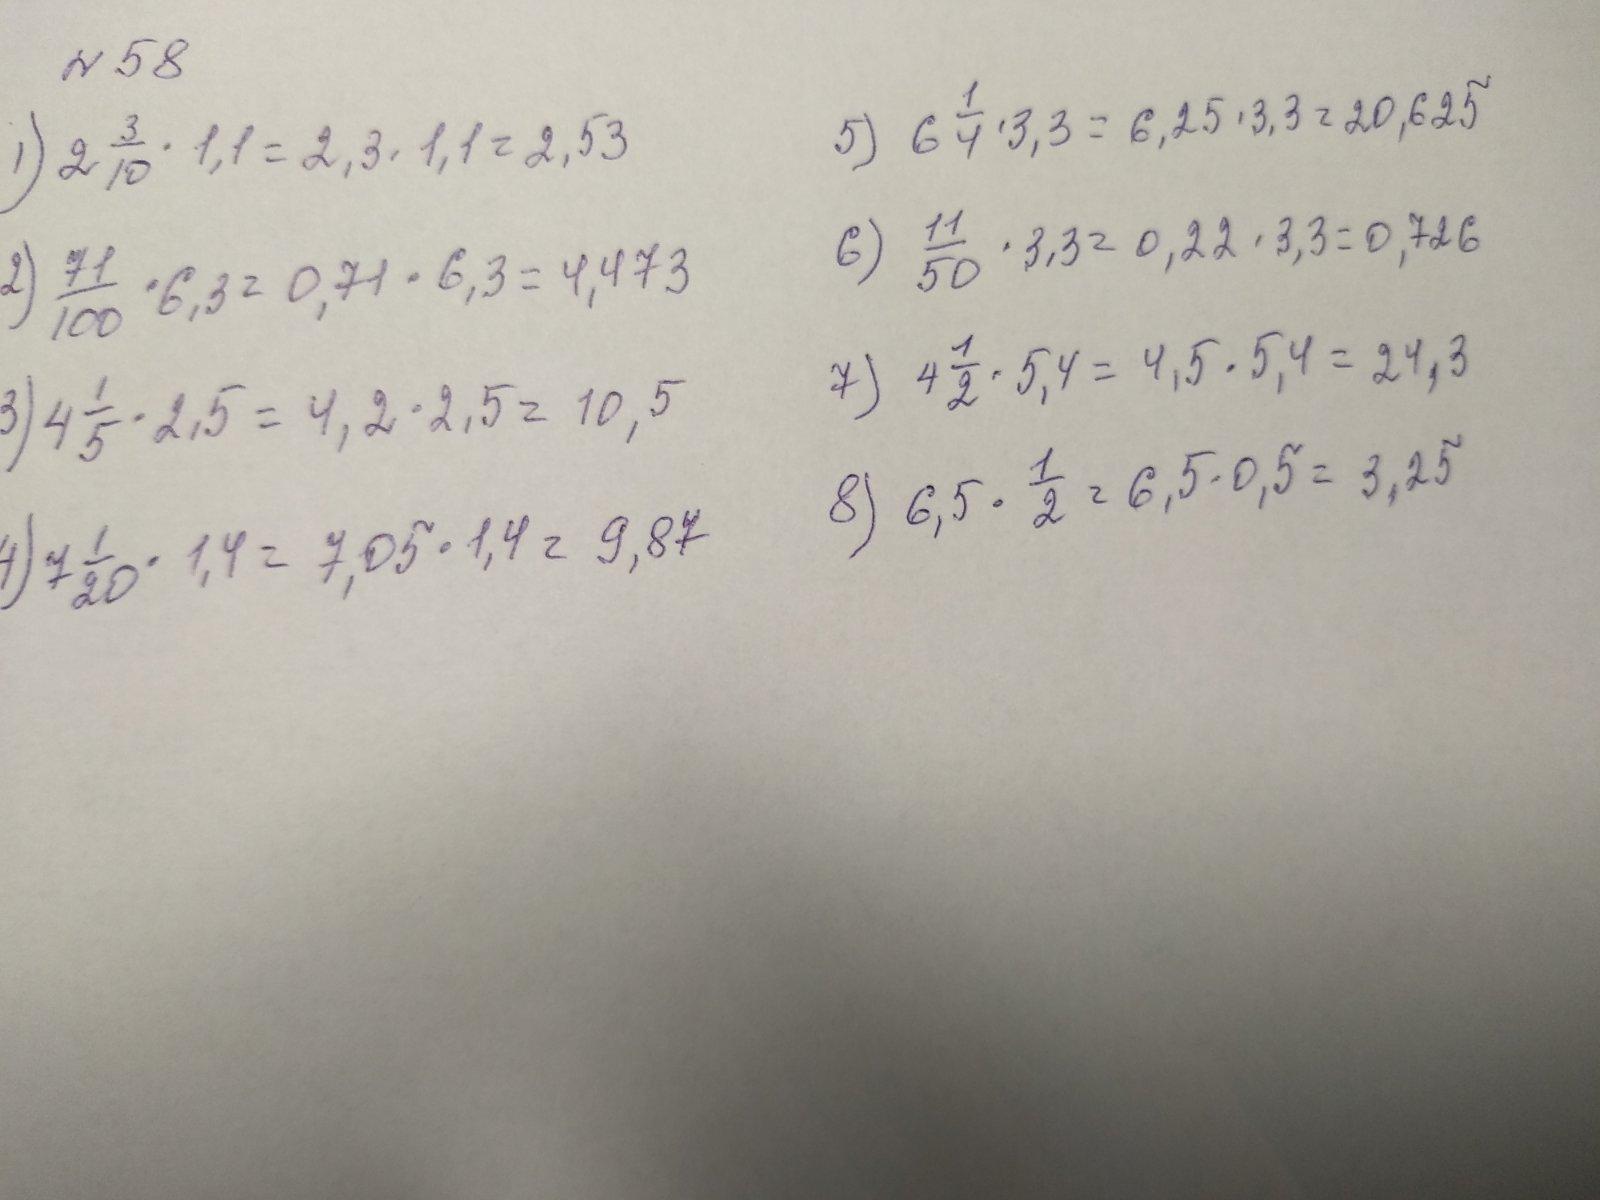 № 58
1) 2 3/10 · 1,1 = 2,3 · 1,1 = 2,53
2) 71/100 · 6,3 = 0,71 · 6,3 = 4,473
3) 4 1/5 · 2,5 = 4,2 · 2,5 = 10,5
4) 7 1/20 · 1,4 = 7,05 · 1,4 = 9,87
5) 6 1/4 · 3,3 = 6,25 · 3,3 = 20,625
6) 11/50 · 3,3 = 0,22 · 3,3 = 0,726
7) 4 1/2 · 5,4 = 4,5 · 5,4 = 24,3
8) 6,5 · 1/2 = 6,5 · 0,5 = 3,25